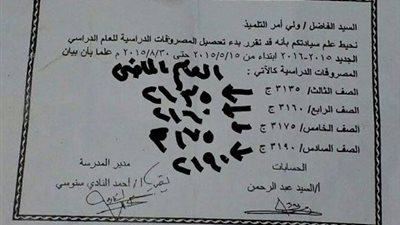 السيد الفاضل / ولي أمر التلميذ
نحيط علم سيادتكم بأنه قد تقرر بدء تحصيل المصروفات الدراسية للعام الدراسي
الجديد ٢٠١٥-٢٠١٦ ابتداء من ٢٠١٥/٥/١٥ حتى ٢٠١٥/٨/٣٠ م علما بأن بيان
المصروفات الدراسية كالآتي:
العام الماضى
الصف الثالث/ ٣١٣٥ ج ٢١٣٥
الصف الرابع/ ٣١٦٠ ج ٢١٦٠
الصف الخامس/ ٣١٧٥ ج
الصف السادس/ ٣١٩٠ ج ٢١٩٠
الحسابات
مدير المدرسة
أ/السيد عبد الرحمن
أ/ أحمد النادي سنوسي